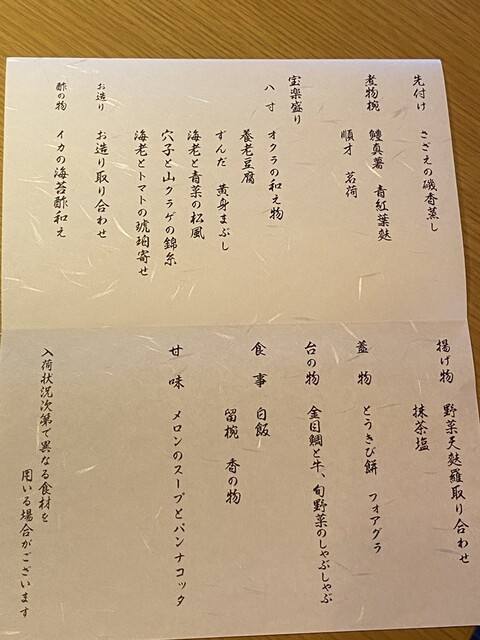 先付け さざえの磯香蒸し
煮物椀 鱧真薯 青紅葉麩
順才 茗荷
宝楽盛り
八寸 オクラの和え物
養老豆腐
ずんだ 黄身まぶし
海老と青菜の松風
穴子と山クラゲの錦糸
海老とトマトの琥珀寄せ
お造り お造り取り合わせ
酢の物 イカの海苔酢和え
揚げ物 野菜天麩羅取り合わせ
抹茶塩
蓋物 とうきび餅 フォアグラ
台の物 金目鯛と牛、旬野菜のしゃぶしゃぶ
食事 白飯
留椀 香の物
甘味 メロンのスープとパンナコッタ
入荷状況次第で異なる食材を
用いる場合がございます